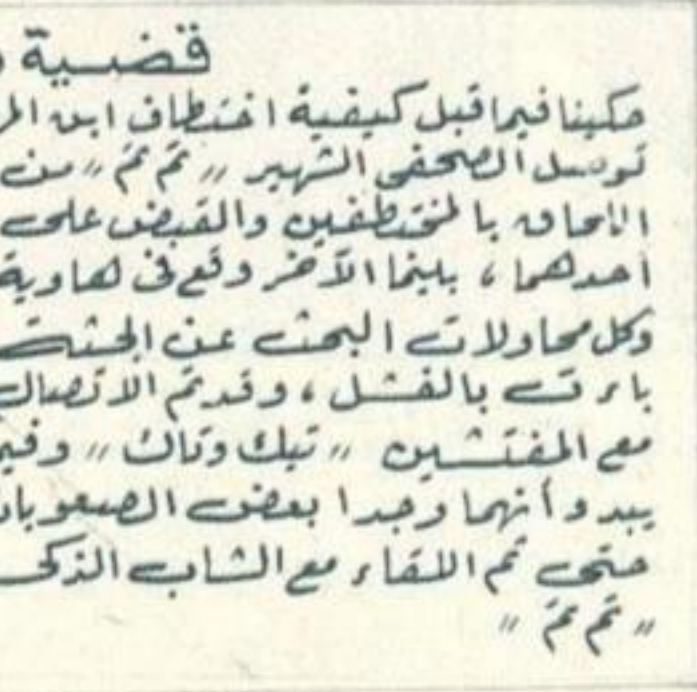 قضية
حكينا فيما قبل كيفية اختطاف ابن
توسل الصحفي الشهير "تم تم" من
اللحاق بالمختطفين والقبض على
احدهما، بينما الآخر وقع في هاوية
وكل محاولات البحث عن الجثة
باءت بالفشل، وقد تم الاتصال
مع المفتشين "تيك وتاك"
يبدو أنهما وجدا بعض
حتى تم اللقاء مع الشاب الذكي
"تم تم"